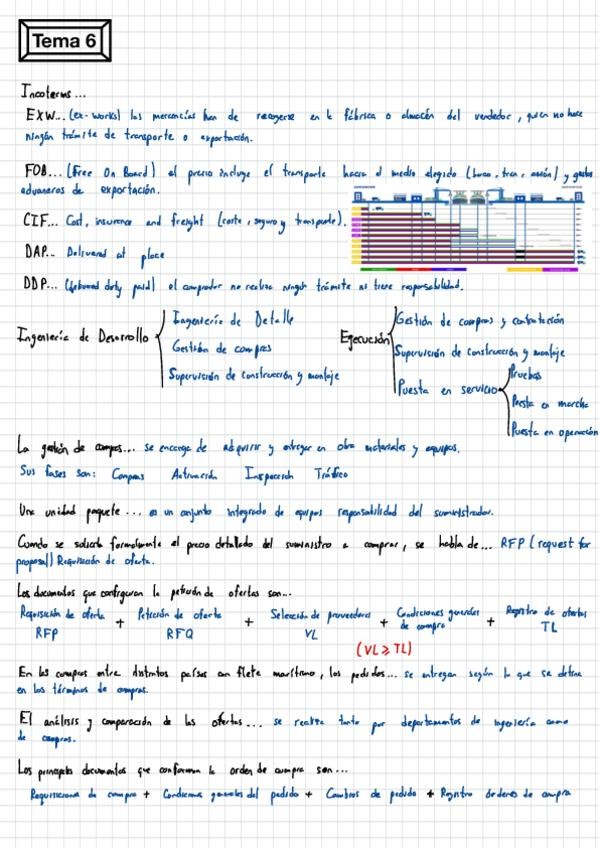 Tema 6
Incoterms...
EXW... (ex-works) las mercancías han de recogerse en la fábrica o almacén del vendedor, quien no hace
ningún trámite de transporte o exportación.
FOB... (Free On Board) el precio incluye el transporte hacia el medio elegido (barco, tren, avión) y gastos
aduaneros de exportación.
CIF... Cost, insurence and freight (coste, seguro y transporte).
DAP... Delivered at place
DDP... duty paid) el comprador no realiza ningún trámite ni tiene responsabilidad.
Ingeniería de Desarrollo
Ingeniería de Detalle
Gestión de compras
Supervisión de construcción y montaje
Ejecución
Gestión de compras y contratación
Supervisión de construcción y montaje
Puesta en servicio
Pruebas
Puesta en marcha
Puesta en operación
La gestión de compras... se encarga de adquirir y entregar en obra materiales y equipos.
Sus fases son: Compras Activación Inspección Tráfico
Una unidad paquete... es un conjunto integrado de equipos responsabilidad del suministrador.
Cuando se solicita formalmente el precio detallado del suministro a comprar, se habla de... RFP (request for
proposal) Requisición de oferta.
Los documentos que configuran la petición de ofertas son...
Requisición de oferta + Petición de oferta + Selección de proveedores + Condiciones generales de compra + Registro de ofertas
RFP RFQ VL TL
(VL ≥ TL)
En las compras entre distintos países con flete marítimo, los pedidos... se entregan según lo que se define
en los términos de compras.
El análisis y comparación de las ofertas... se realiza tanto por departamentos de ingeniería como
de compras.
Los principales documentos que conforman la orden de compra son...
Requisiciones de compra + Condiciones generales del pedido + Cambios de pedido + Registro órdenes de compra